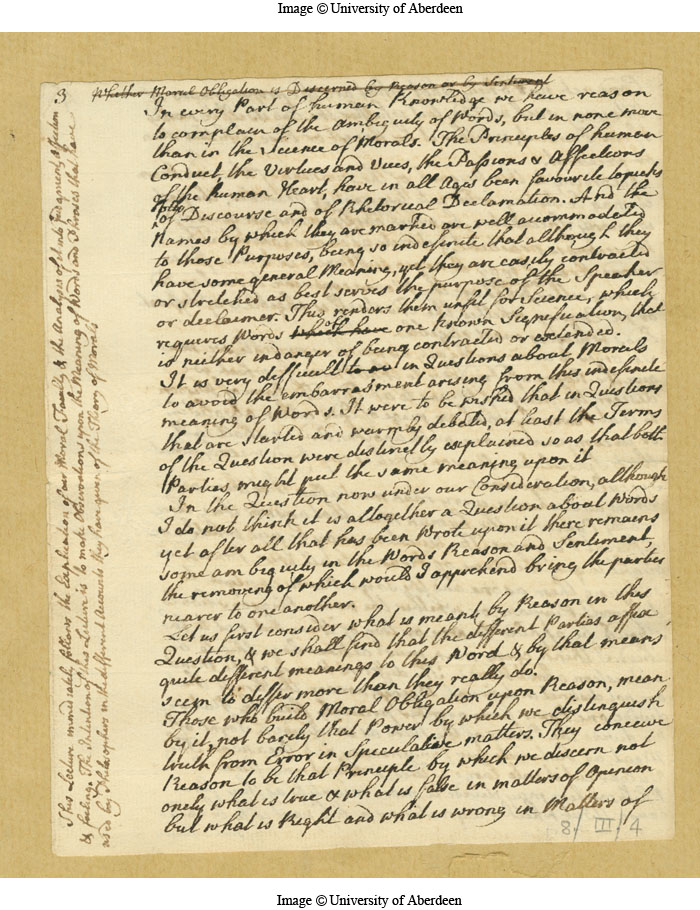 Image © University of Aberdeen
3 Whether Moral Obligation is Discerned by Reason or by Sentiment
In every Part of human Knowledge we have reason
to complain of the Ambiguity of Words, but in none more
than in the Science of Morals. The Principles of human
Conduct, the Virtues and Vices, the Passions & Affections
of the human Heart, have in all Ages been favourite topicks
of Discourse and of Rhetorical Declamation. And the
Names by which they are marked are well accommodated
to those Purposes, being so indefinite that although they
have some general Meaning, yet they are easily contracted
or stretched as best serves the purpose of the Speaker
or declaimer. This renders them unfit for Science, which
requires Words which have of one known Signification, that
is neither in danger of being contracted or extended.
It is very difficult in Questions about Morals
to avoid the embarrasment arising from this indefinite
meaning of Words. It were to be wished that in Questions
that are started and warmly debated, at least the Terms
of the Question were distinctly explained so as that both
Parties might put the same meaning upon it
In the Question now under our Consideration, although
I do not think it is altogether a Question about Words
yet after all that has been wrote upon it there remains
some ambiguity in the Words Reason and Sentiment,
the removing of which would I apprehend bring the parties
nearer to one another.
Let us first consider what is meant by Reason in this
Question, & we shall find that the different Parties affix
quite different meanings to this Word & by that means
seem to differ more than they really do.
Those who build Moral Obligation upon Reason, mean
by it, not barely that Power by which we distinguish
truth from Error in Speculative matters. They conceive
Reason to be that Principle by which we discern not
onely what is true & what is false in matters of Opinion
but what is Right and what is wrong in Matters of
8/III/4
This Lecture immediately follows the Explication of our Moral Faculty & the Analysis of it into Judgment, Affection
& feeling. The Intention of this Lecture is to make Observations upon the Meaning of Words and Phrases that have
used by Philosophers in the different Accounts they have given of the Theory of Morals
Image © University of Aberdeen